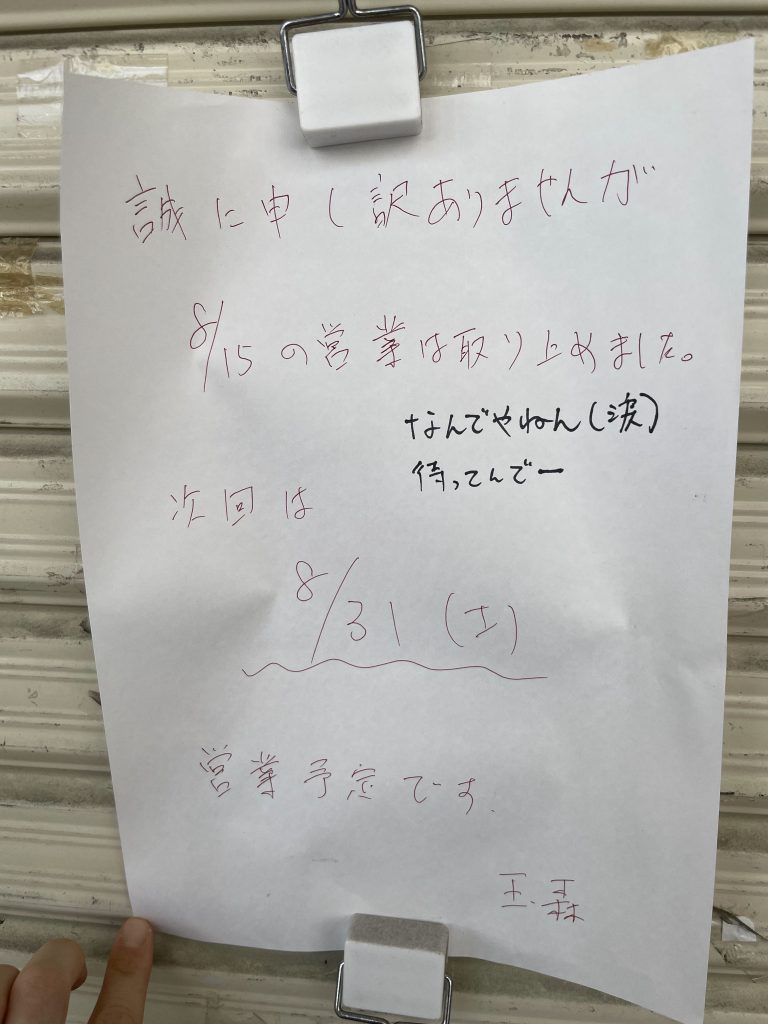 誠に申し訳ありませんが
8/15の営業は取り止めました。
なんでやねん(涙)
待ってんでー
次回は
8/31(土)
営業予定です.